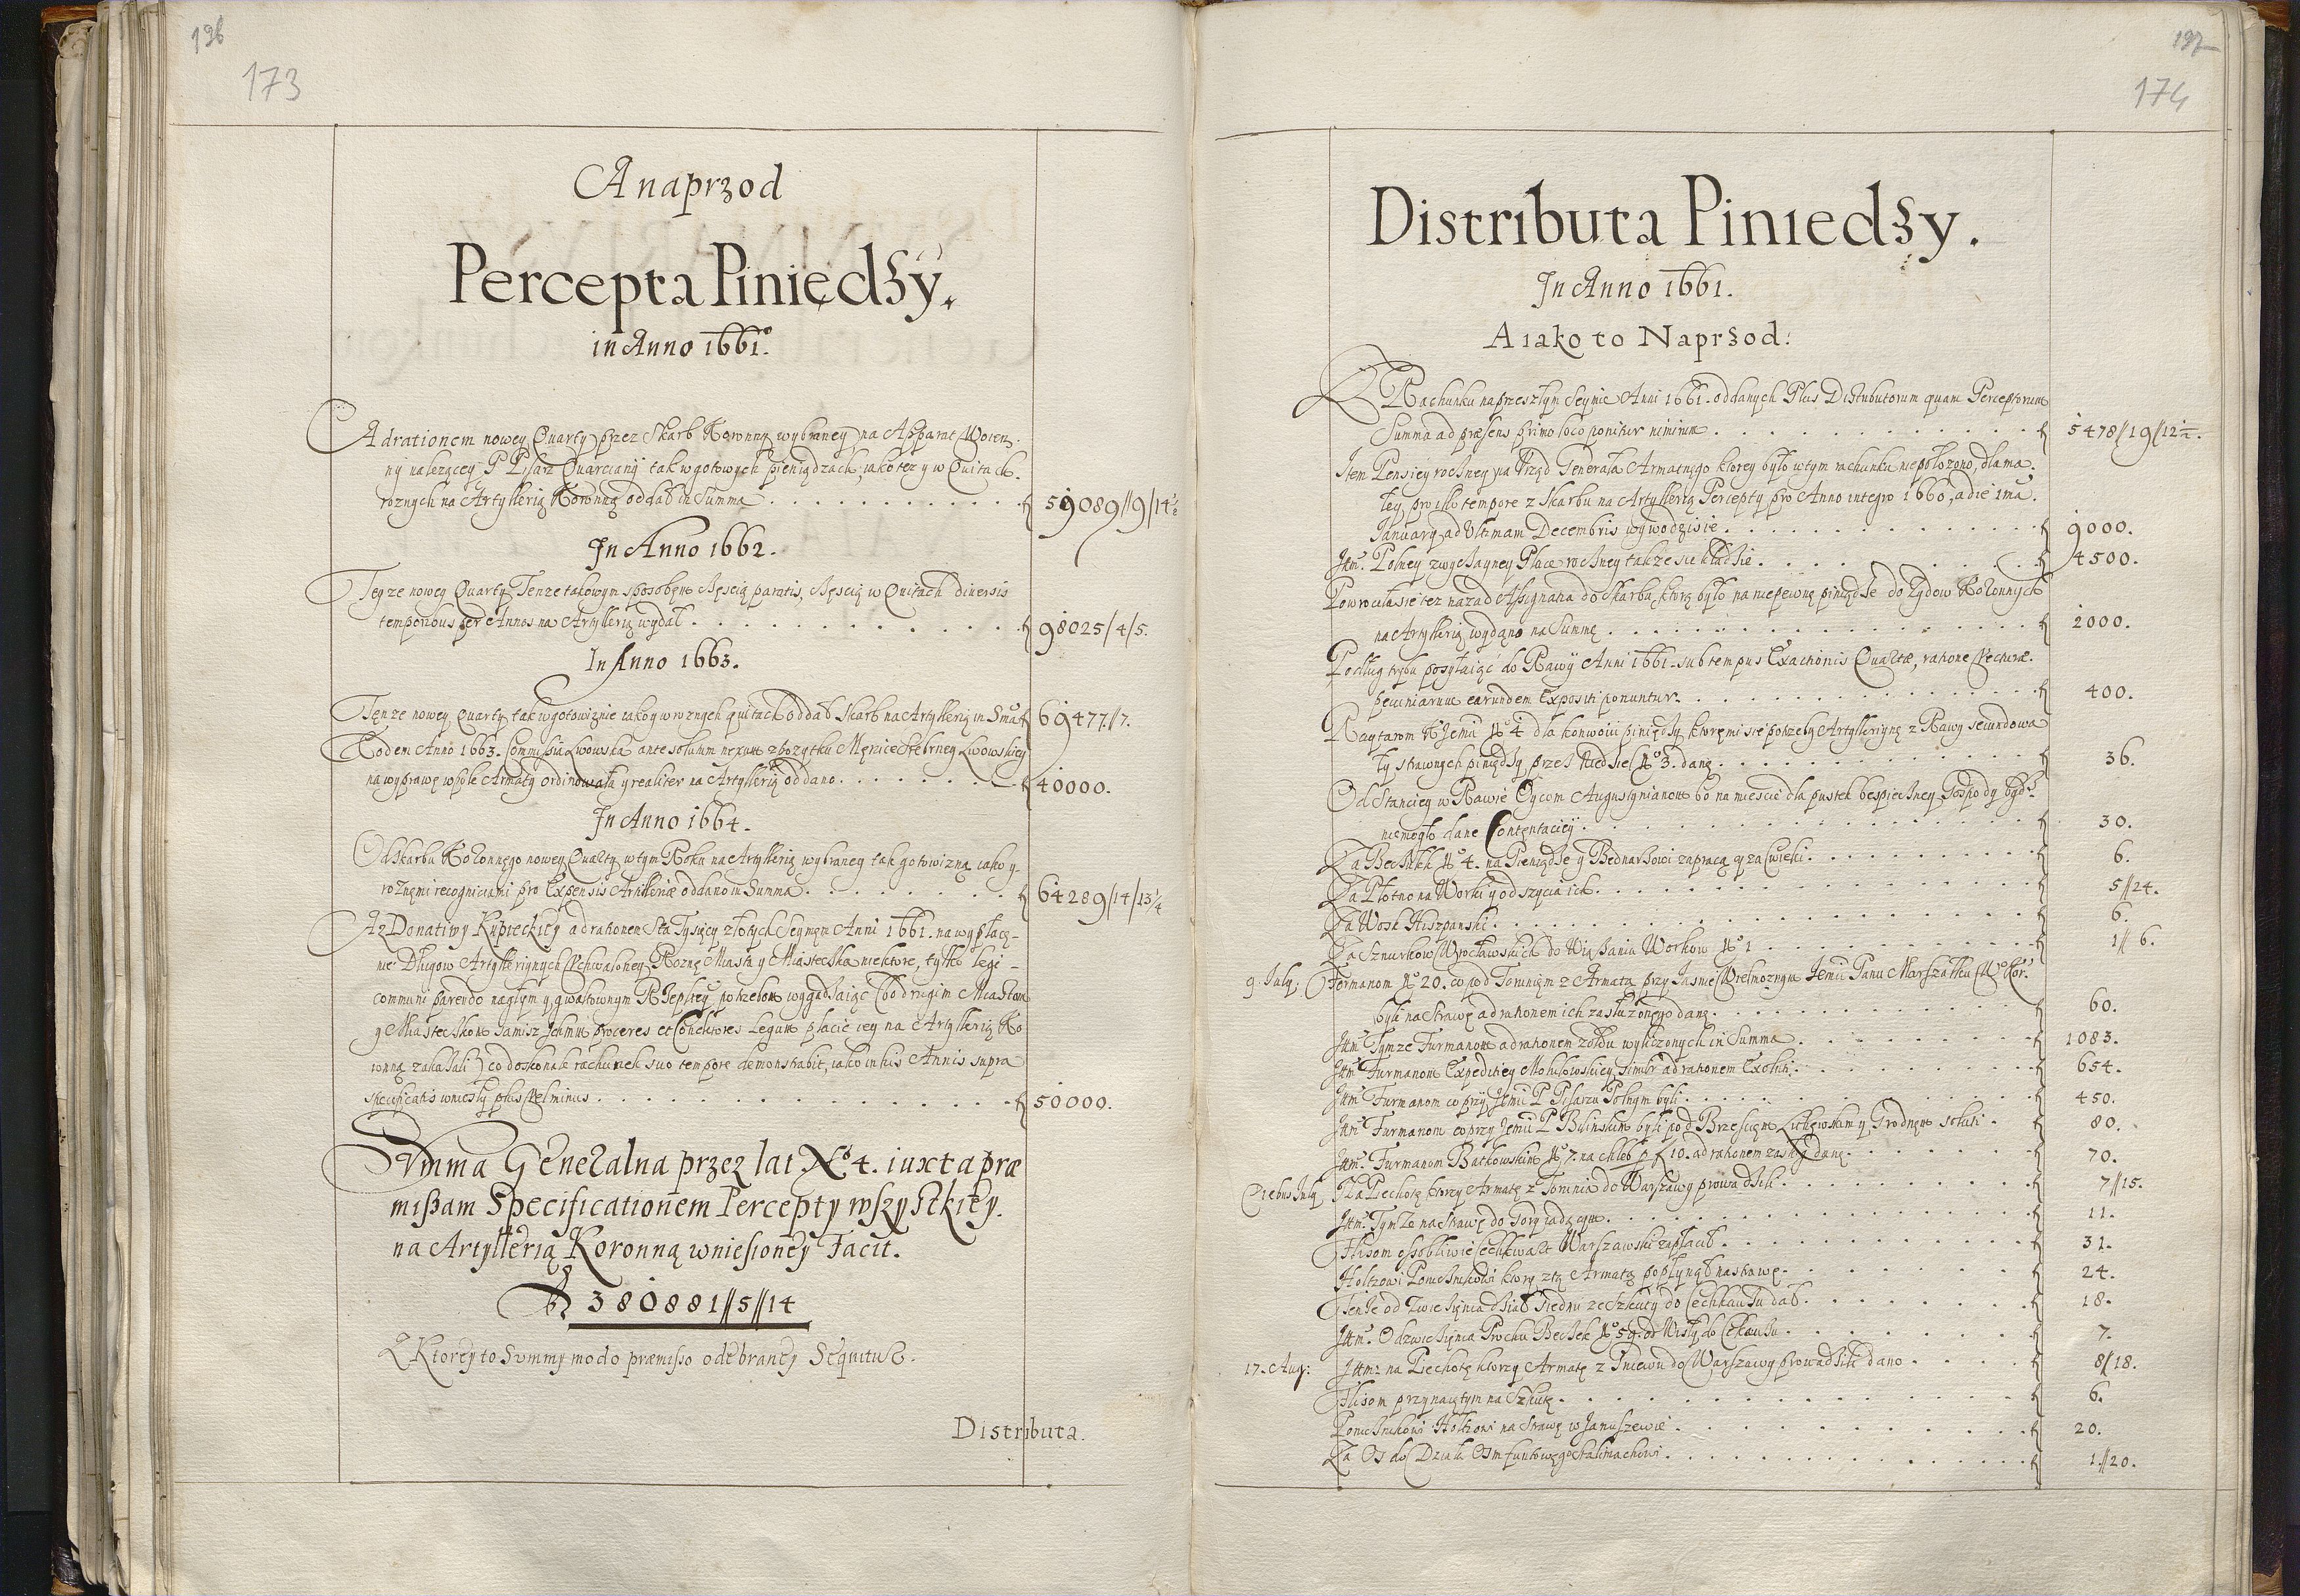 196
173
A naprzod
Percepta Piniędzy.
in Anno 1661º.
Ad rationem nowey Quarty przez Skarb Koronny wybraney na Apparat Woien
ny nalezącey P Pisarz Quarciany tak w gotowych pieniądzach, iako tez y w Quitach
roznych na Artyllerią Koronną oddał in Summa 59089//9/14½
In Anno 1662.
Teyze nowey Quarty Tenze takowym sposobem częscią paratis, częscią w Quitach diversis
temporibus per Annos na Artyllerią wydał 98025/4/5.
In Anno 1663.
Tęnze nowey Quarty tak w gotowiznie iako y w roznych quitach oddał Skarb na Artyllerią in Sma 69477//7.
Eodem Anno 1663. Commissia Lwowska ante solutum nexum z pozytku Męnice Srebrney Lwowskiey
na wyprawę wszytke Armaty ordinowała y realiter na Artyllerią oddano 40000.
In Anno 1664.
Od Skarbu Koronnego nowey Quarty w tym Roku na Artyllerią wybraney tak gotowizną iako y
roznęmi recognitiami pro Expensis Artilleriæ oddano in Summa 64289/14/13¼
A z Donatiwy Kupieckiey ad rationem Sta Tysięcy złotych Seymem Anni 1661. na wypłace-
nie Długow Artylleriynych Uchwaloney Rozne Miasta y Miasteczka niektore, tylko legi-
communi parendo nagłym y gwałtownym RPepltey potrzebom wygadzaiąc (bo drugim Miastom
y Miasteczkom sami Ichmm proceres et Conditores Legum płacic iey na Artyllerią Ko
ronną zakazali) co doskonale rachunek suo tempore demonstrabit, iako in his Annis supra
specificatis wniesły plus vel minus 50000.
Summa Generalna przez lat Nº 4. iuxta præ
missam Specificationem Percepty wszystkiey.
na Artyllerią Koronną wniesioney Facit.
380881//5//14
Z Ktorey to Summy modo præmisso odebraney Sequitur.
Distributa.
197
174
Distributa Piniedzy.
In Anno 1661.
A iako to Naprzod.
Z Rachunku na przeszłym Seymie Anni 1661. oddanych Plus Distributorum quam Perceptorum
Summa ad præsens primo loco ponitur nimirum 5478//19//12½.
Item Pensiey roczney na Urząd Generała Armatnego ktorey było w tym rachunku nie połozono, dla ma
łey pro illo tempore z Skarbu na Artyllerią Percepty pro Anno integro 1660, a die 1ma
January ad Ultimam Decembris wywodzi sie 9000.
Ittm. Polney zwyczayney Płace roczney takze sie kładzie 4500.
Powrociła sie tez nazad Assignata do Skarbu, ktorą było na niepewne piniądze do Zydow Koronnych
na Artyllerią wydano na Summę 2000.
Podług trybu posyłaiąc do Rawy Anni 1661. sub tempus Exactionis Quartæ, ratione Vecturæ
pecuniarum earundem Expositi ponuntur 400.
Raytarom KJemci Nº 4 dla konwoiu piniędzy, ktoremi sie potrzeby Artylleriyne z Rawy secundowa
ły strawnych piniędzy przez Niedziel Nº 3. dano 36.
Od Stanciey w Rawie Oycom Augustynianom bo na miescie dla pustek bespieczney Gospody bydz
niemogło dane Contentaciey 30.
Za Beczułek Nº 4. na Pieniądze y Bednarzowi za pracą y za Cwieki 6.
Za Płotno na Worki y od szycia ich 5//24.
Za Wosk Hiszpanski 6.
Za Sznurkow Wrocławskich do Wiązania Workow Nº 1 1//6.
9. July. Furmanom Nº 20. co pod Toruniem z Armatą przy Jasnie Wielmoznym Jemci Panu Marszałku W Kor.
byli na Strawę ad rationem ich zasłuzonego dano 60.
Ittm. Tymze Furmanom ad rationem zołdu wyliczonych in Summa 1083.
Ittm Furmanom Expeditiey Mohilowskiey similr ad rationem Exolut 654.
Ittm Furmanom co przy Jemci P Pisarzu Polnym byli 450.
Ittm Furmanom co przy Jemci P Bilinskim byli pod Brzesciem Litewskim y Grodnem soluti 80.
Ittm. Furmanom Batkowskim Nº 7. na chleb p. f 10. ad rationem zasług dano 70.
Diebus July Na Piechotę ktorzy Armatę z Torunia do Warszawy prowadzili 7//15.
Ittm. Tymze na Strawę do Gory iadącym 11.
Flisom ossobliwie Cechwart Warszawski zapłacił 31.
Holtzowi Puszkarzowi ktory z tą Armatą popłynął na strawę 24.
Tenze od Zwiezienia dział Siedmi ze Szkuty do Cechauzu dał 18.
Ittm. Od zwiezienia Prochu Beczek Nº 59. od Wisły do Cekauzu 7.
17. Aug: Ittm: na Piechotę ktorzy Armatę z Gniewu do Warszawy prowadzili dano 8//18.
Flisom przynaiętym na Szkutę 6.
Holtzowi na Strawę w Januszewie 20.
Za Os do Działa Osmfuntowego Stalmachowi 1//20.